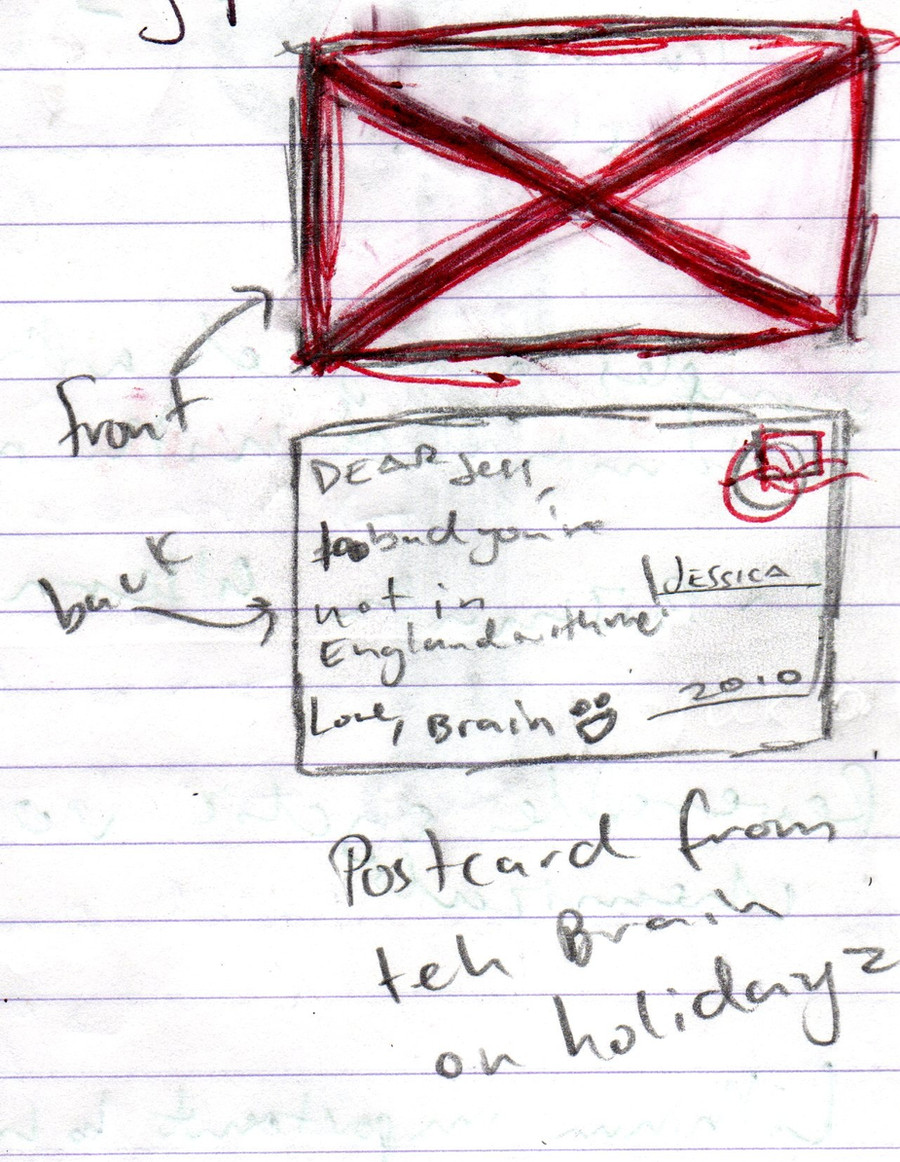 front
DEAR Jess,
too bad you're
not in
England with me!
Love, Brain
JESSICA
2010
back
Postcard from
teh Brain
on holidayz